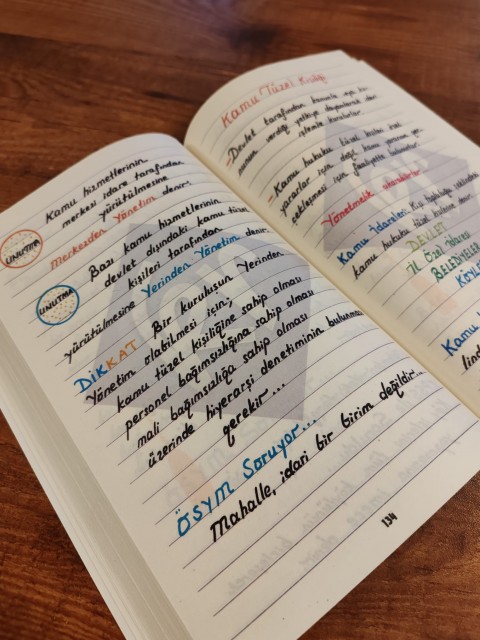 Kamu hizmetlerinin
merkezi idare tarafından
yürütülmesine
Merkezden Yönetim denir.
UNUTMA
Bazı kamu hizmetlerinin
devlet dışındaki kamu tüzel
kişileri tarafından
yürütülmesine Yerinden Yönetim denir.
UNUTMA
DİKKAT Bir kuruluşun Yerinden
Yönetim olabilmesi için;
kamu tüzel kişiliğine sahip olması
personel bağımsızlığına sahip olması
mali bağımsızlığa sahip olması
üzerinde hiyerarşi denetiminin bulunması
gerekir...
ÖSYM Soruyor...
Mahalle, idari bir birim değildir...
134
Kamu Tüzel Kişiliği
Devlet tarafından kanunla veya ka-
nunun verdiği yetkiye dayanılarak idari
işlemle kurulurlar.
Kamu hukuku tüzel kişileri özel
yararlar için değil kamu yararını ger-
çekleştirmek için faaliyette bulunurlar.
Yönetmelik çıkarabilirler
Kamu İdareleri: Kişi topluluğu şeklindeki
kamu hukuku tüzel kişileridir.
DEVLET
İl Özel İdaresi
BELEDİYELER
KÖYLER
Kamu